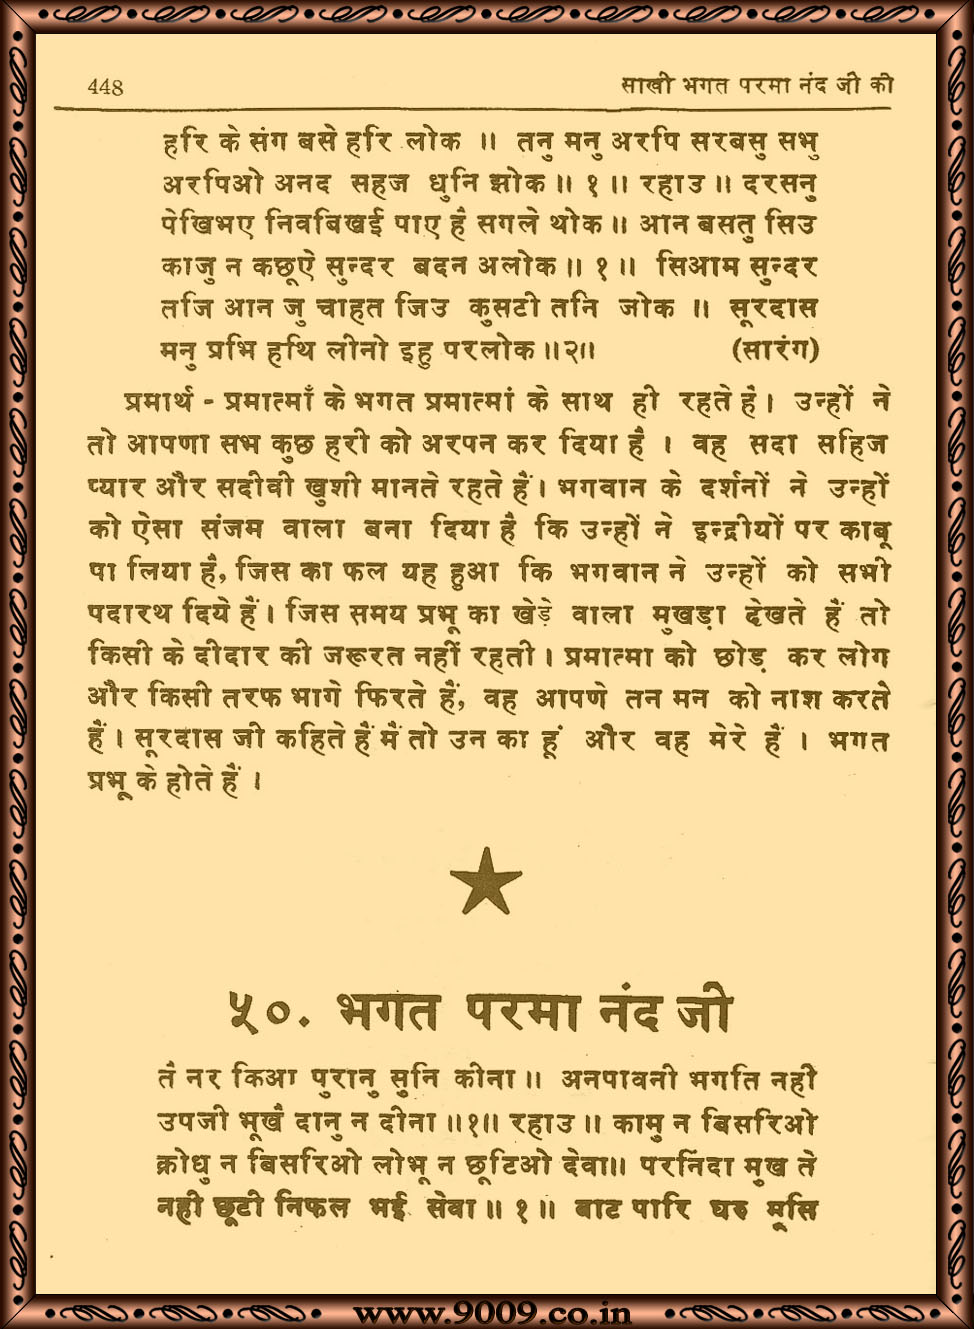 448 साखी भगत परमा नंद जी की
हरि के संग बसे हरि लोक ॥ तनु मनु अरपि सरबसु सभु
अरपिओ अनद सहज धुनि झोक ॥ १ ॥ रहाउ ॥ दरसनु
पेखिभए निवबिखई पाए है सगले थोक ॥ आन बसतु सिउ
काजु न कछूऐ सुन्दर बदन अलोक ॥ १ ॥ सिआम सुन्दर
तजि आन जु चाहत जिउ कुसटी तनि जोक ॥ सूरदास
मनु प्रभि हथि लीनो इहु परलोक ॥२॥ (सारंग)
प्रमार्थ - प्रमात्माँ के भगत प्रमात्मां के साथ ही रहते है। उन्हों ने
तो आपणा सभ कुछ हरी को अरपन कर दिया है । वह सदा सहिज
प्यार और सदीवी खुशी मानते रहते हैं। भगवान के दर्शनों ने उन्हों
को ऐसा संजम वाला बना दिया है कि उन्हों ने इन्द्रीयों पर काबू
पा लिया है, जिस का फल यह हुआ कि भगवान ने उन्हों को सभी
पदारथ दिये हैं। जिस समय प्रभू का खेड़े वाला मुखड़ा देखते हैं तो
किसी के दीदार की जरूरत नहीं रहती। प्रमात्मा को छोड़ कर लोग
और किसी तरफ भागे फिरते हैं, वह आपणे तन मन को नाश करते
हैं। सूरदास जी कहिते हैं मैं तो उन का हूं और वह मेरे हैं । भगत
प्रभू के होते हैं ।
५०. भगत परमा नंद जी
तै नर किआ पुरानु सुनि कीना ॥ अनपावनी भगति नही
उपजी भूखै दानु न दीना ॥१॥ रहाउ ॥ कामु न बिसरिओ
क्रोधु न बिसरिओ लोभू न छूटिओ देवा॥ परनिंदा मुख ते
नही छूटी निफल भई सेवा ॥ १ ॥ बाट पारि घरु मूसि
www.9009.co.in